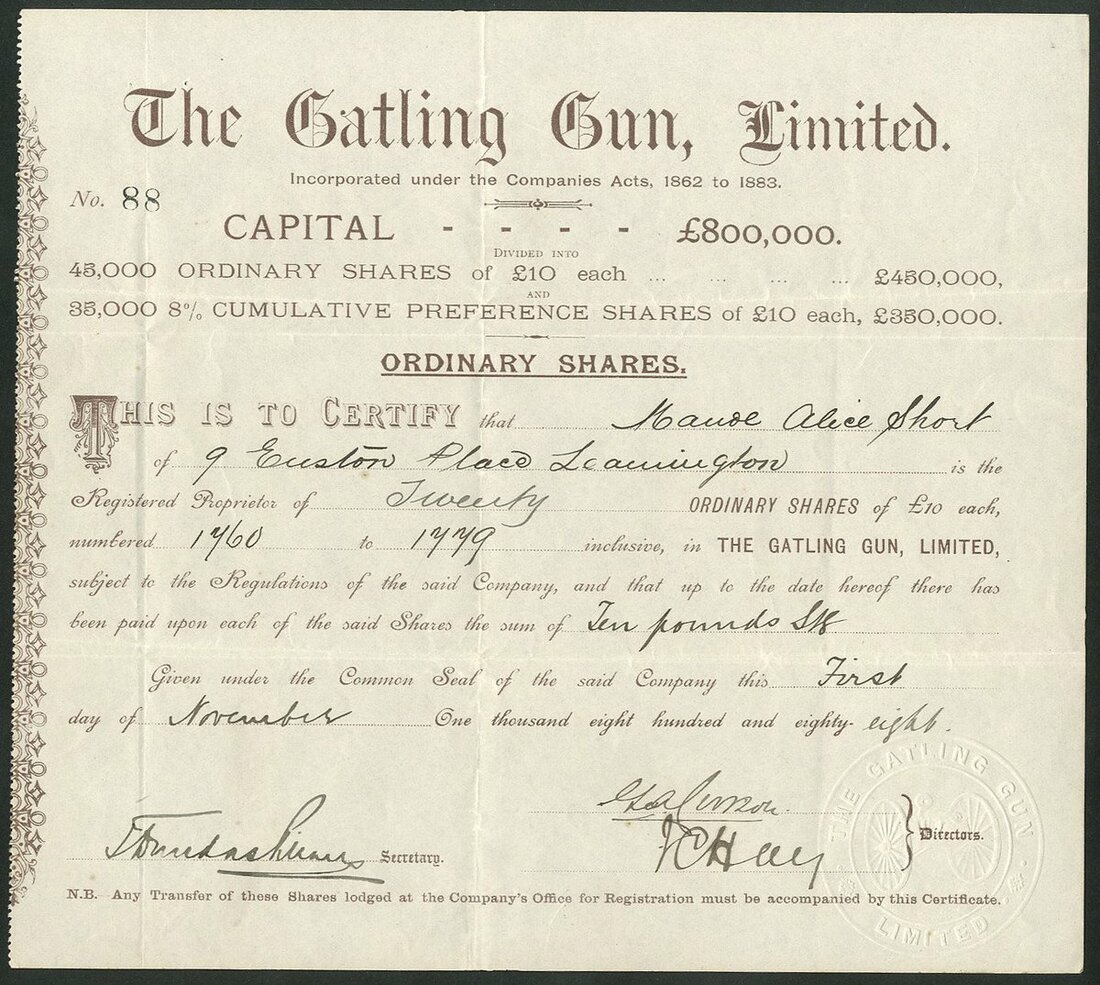 The Gatling Gun, Limited.
Incorporated under the Companies Acts, 1862 to 1883.
No. 88
CAPITAL - - - - £800,000.
DIVIDED INTO
45,000 ORDINARY SHARES of £10 each ... ... ... ... £450,000,
AND
35,000 8% CUMULATIVE PREFERENCE SHARES of £10 each, £350,000.
ORDINARY SHARES.
THIS IS TO CERTIFY that Maude Alice Short
of 9 Euston Place Leamington is the
Registered Proprietor of Twenty ORDINARY SHARES of £10 each,
numbered 1760 to 1779 inclusive, in THE GATLING GUN, LIMITED,
subject to the Regulations of the said Company, and that up to the date hereof there has
been paid upon each of the said Shares the sum of Ten pounds Stg
Given under the Common Seal of the said Company this First
day of November One thousand eight hundred and eighty-eight.
Directors.
Secretary.
N.B. Any Transfer of these Shares lodged at the Company's Office for Registration must be accompanied by this Certificate.
THE GATLING GUN
LIMITED